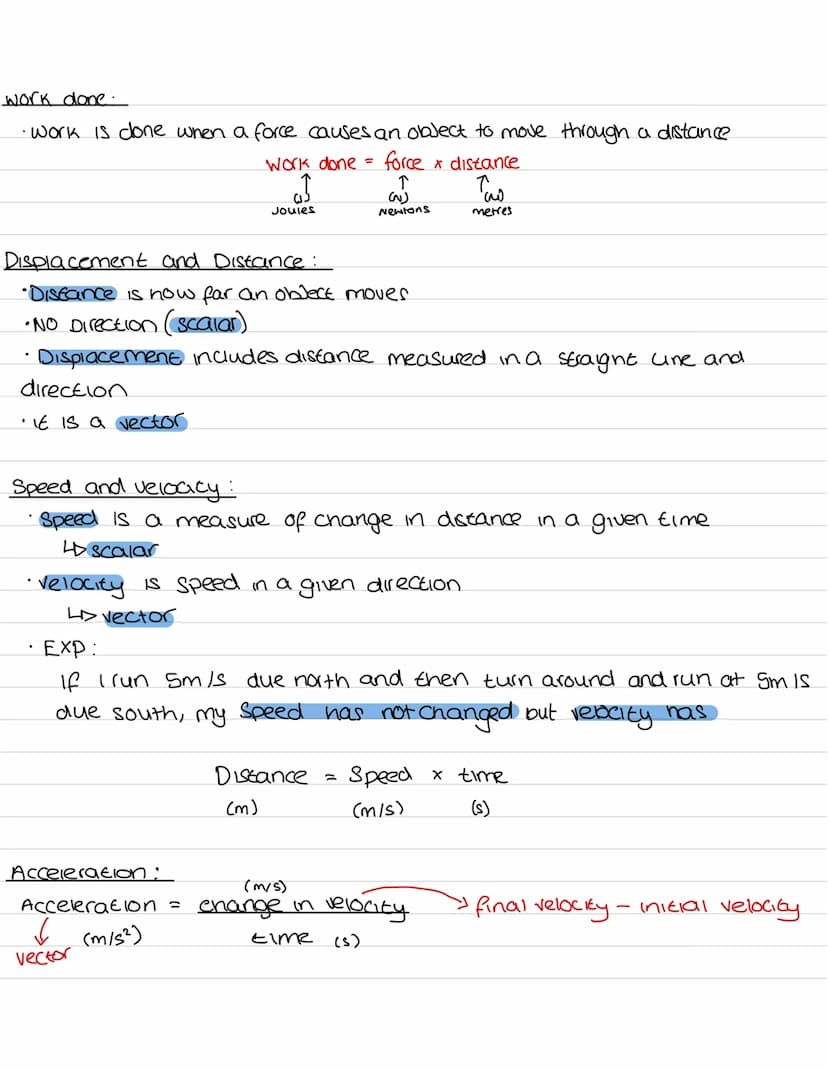 Work done:
· Work is done when a force causes an object to move through a distance
Work done = force x distance
(J) (N) (m)
Joules Newtons metres
Displacement and Distance:
· Distance is how far an object moves
· NO Direction (scalar)
· Displacement includes distance measured in a straight line and
direction
· it is a vector
Speed and velocity:
· Speed is a measure of change in distance in a given time
↳ scalar
· velocity is speed in a given direction
↳ vector
· EXP:
If I run 5m/s due north and then turn around and run at 5m/s
due south, my speed has not changed but velocity has
Distance = Speed x time
(m) (m/s) (s)
Acceleration:
(m/s)
Acceleration = change in velocity → final velocity - initial velocity
(m/s²) time (s)
vector